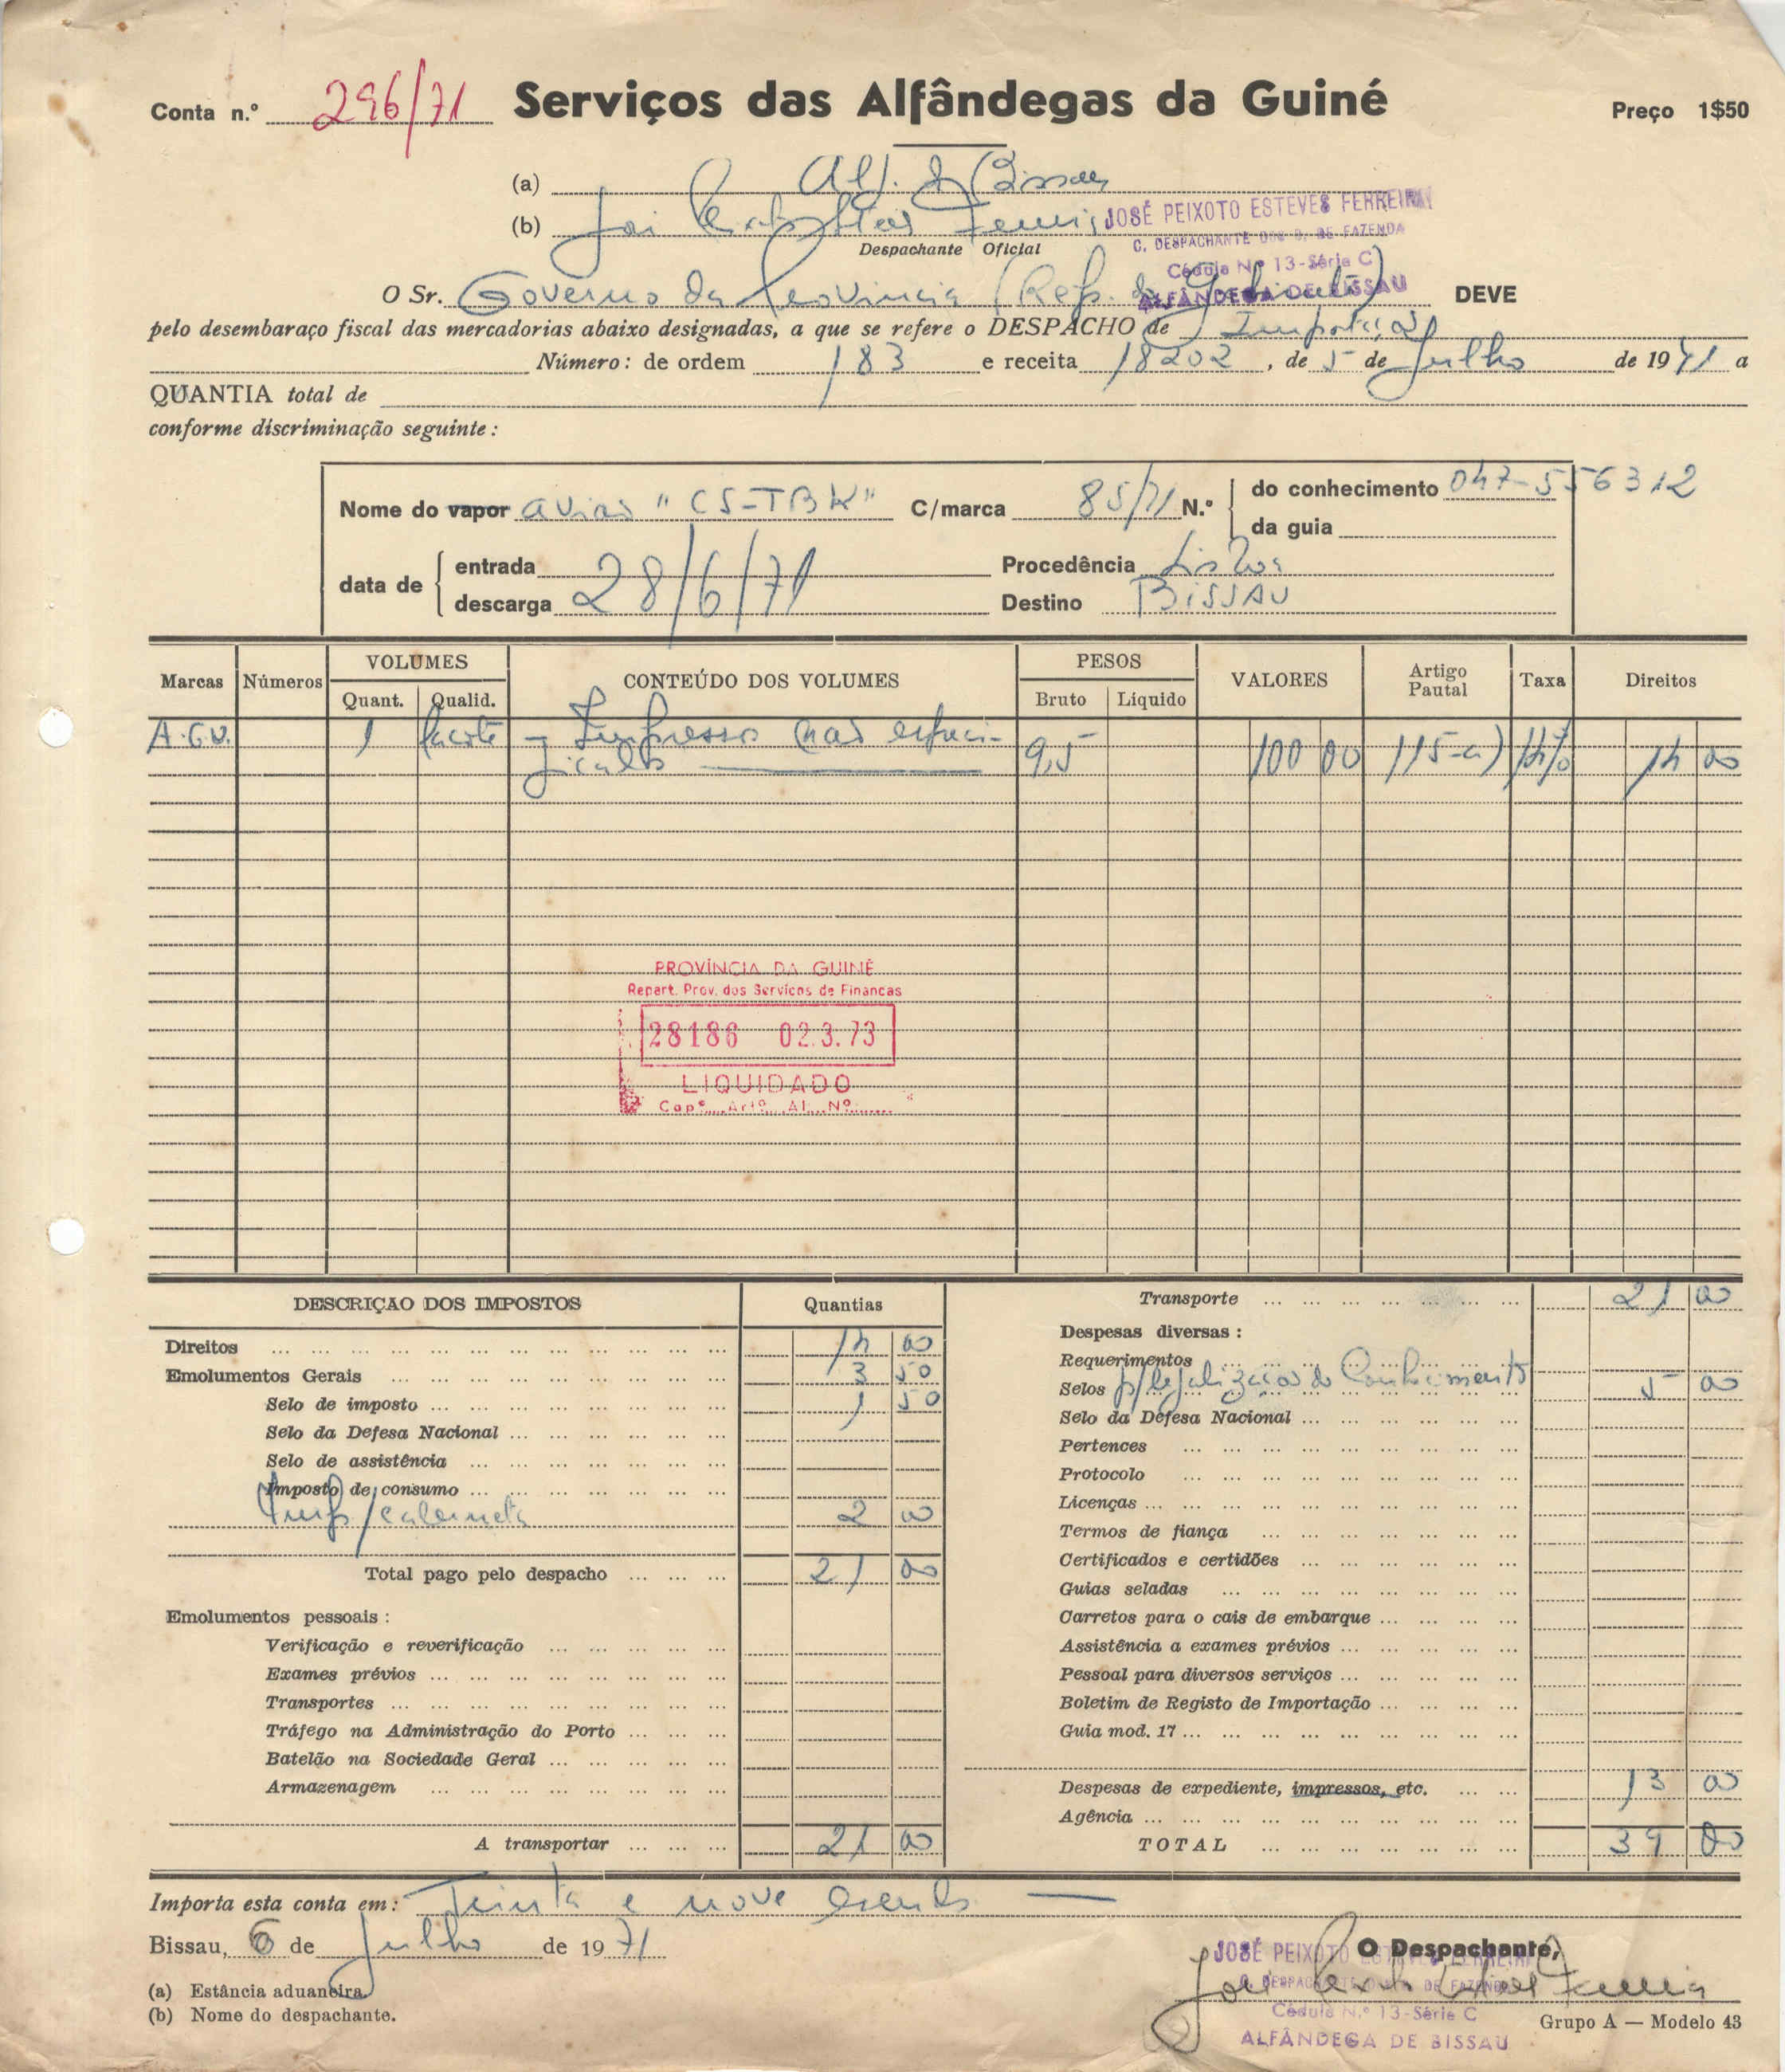 Conta n.º 296/71 Serviços das Alfândegas da Guiné Preço 1$50
(a) Alf. de Bissau
(b) José Peixoto Esteves Ferreira JOSÉ PEIXOTO ESTEVES FERREIRA
Despachante Oficial C. DESPACHANTE DOS S. DE FAZENDA
Cédula Nº 13-Série C
ALFÂNDEGA DE BISSAU
O Sr. Governo da Provincia (Rep. do Gabinete) DEVE
pelo desembaraço fiscal das mercadorias abaixo designadas, a que se refere o DESPACHO de Importação
Número: de ordem 183 e receita 18202, de 5 de Julho de 1971 a
QUANTIA total de
conforme discriminação seguinte:
Nome do vapor avião "CS-TBK" C/marca 85/71 N.º do conhecimento 047-556312
da guia
data de entrada Procedência Lisboa
descarga 28/6/71 Destino BISSAU
Marcas Números VOLUMES CONTEÚDO DOS VOLUMES PESOS VALORES Artigo Pautal Taxa Direitos
Quant. Qualid. Bruto Líquido
A.G.V. 1 pacote - Impressos não especi-
ficados 9,5 100 00 115-a) 14% 14 00
PROVÍNCIA DA GUINÉ
Repart. Prov. dos Serviços de Finanças
28186 02.3.73
LIQUIDADO
Capº Artº Al. Nº
DESCRIÇÃO DOS IMPOSTOS Quantias
Direitos 14 00
Emolumentos Gerais 3 50
Selo de imposto 1 50
Selo da Defesa Nacional
Selo de assistência
Imposto de consumo
Imp/caderneta 2 00
Total pago pelo despacho 21 00
Emolumentos pessoais:
Verificação e reverificação
Exames prévios
Transportes
Tráfego na Administração do Porto
Batelão na Sociedade Geral
Armazenagem
A transportar 21 00
Transporte 21 00
Despesas diversas:
Requerimentos
Selos p/legalização do Conhecimento 5 00
Selo da Defesa Nacional
Pertences
Protocolo
Licenças
Termos de fiança
Certificados e certidões
Guias seladas
Carretos para o cais de embarque
Assistência a exames prévios
Pessoal para diversos serviços
Boletim de Registo de Importação
Guia mod. 17
Despesas de expediente, impressos, etc. 13 00
Agência
TOTAL 39 00
Importa esta conta em: Trinta e nove escudos
Bissau, 6 de Julho de 1971
O Despachante,
JOSÉ PEIXOTO ESTEVES FERREIRA
C. DESPACHANTE DOS S. DE FAZENDA
José Peixoto Esteves Ferreira
Cédula N.º 13-Série C
ALFÂNDEGA DE BISSAU
(a) Estância aduaneira.
(b) Nome do despachante.
Grupo A — Modelo 43